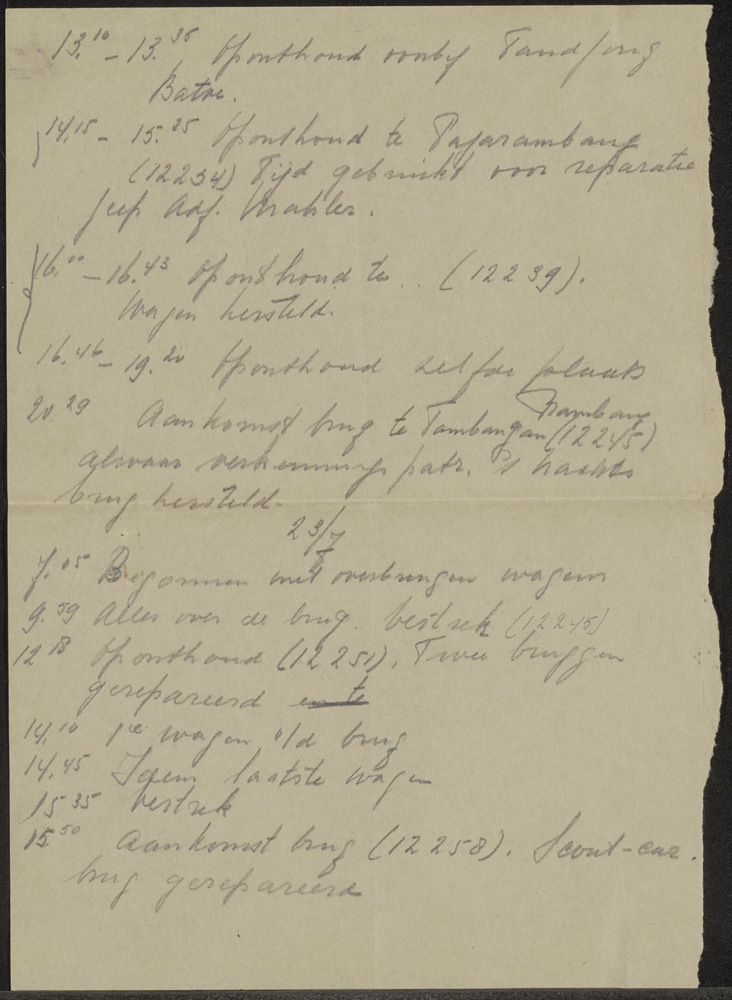 13.10 - 13.35 Oponthoud voorby Tandjong
Batoe.
14.15 - 15.25 Oponthoud te Pajarambang
(12234) Tijd gebruikt voor reparatie
jeep Adj. Mahler.
16.00 - 16.43 Oponthoud te .. (12239).
Wagen hersteld.
16.46 - 19.20 Oponthoud zelfde plaats
20.29 Aankomst brug te Tambangan Rambang (12245)
alwaar verkennings patr. 's nachts
brug hersteld.
23/7
7.05 Begonnen met overbrengen wagens
9.59 Alles over de brug. Vertrek (12245)
12.18 Oponthoud (12251). Twee bruggen
gerepareerd en te
14.10 1e wagen o/d brug
14.45 Idem laatste wagen
15.35 Vertrek
15.50 Aankomst brug (12258). Scout-car.
brug gerepareerd